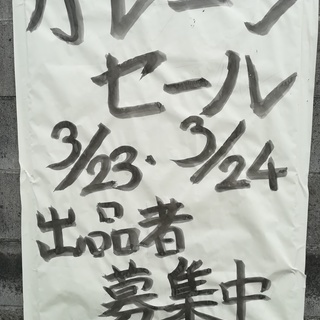 ガレージ
セール
3/23・3/24
出品者
募集中